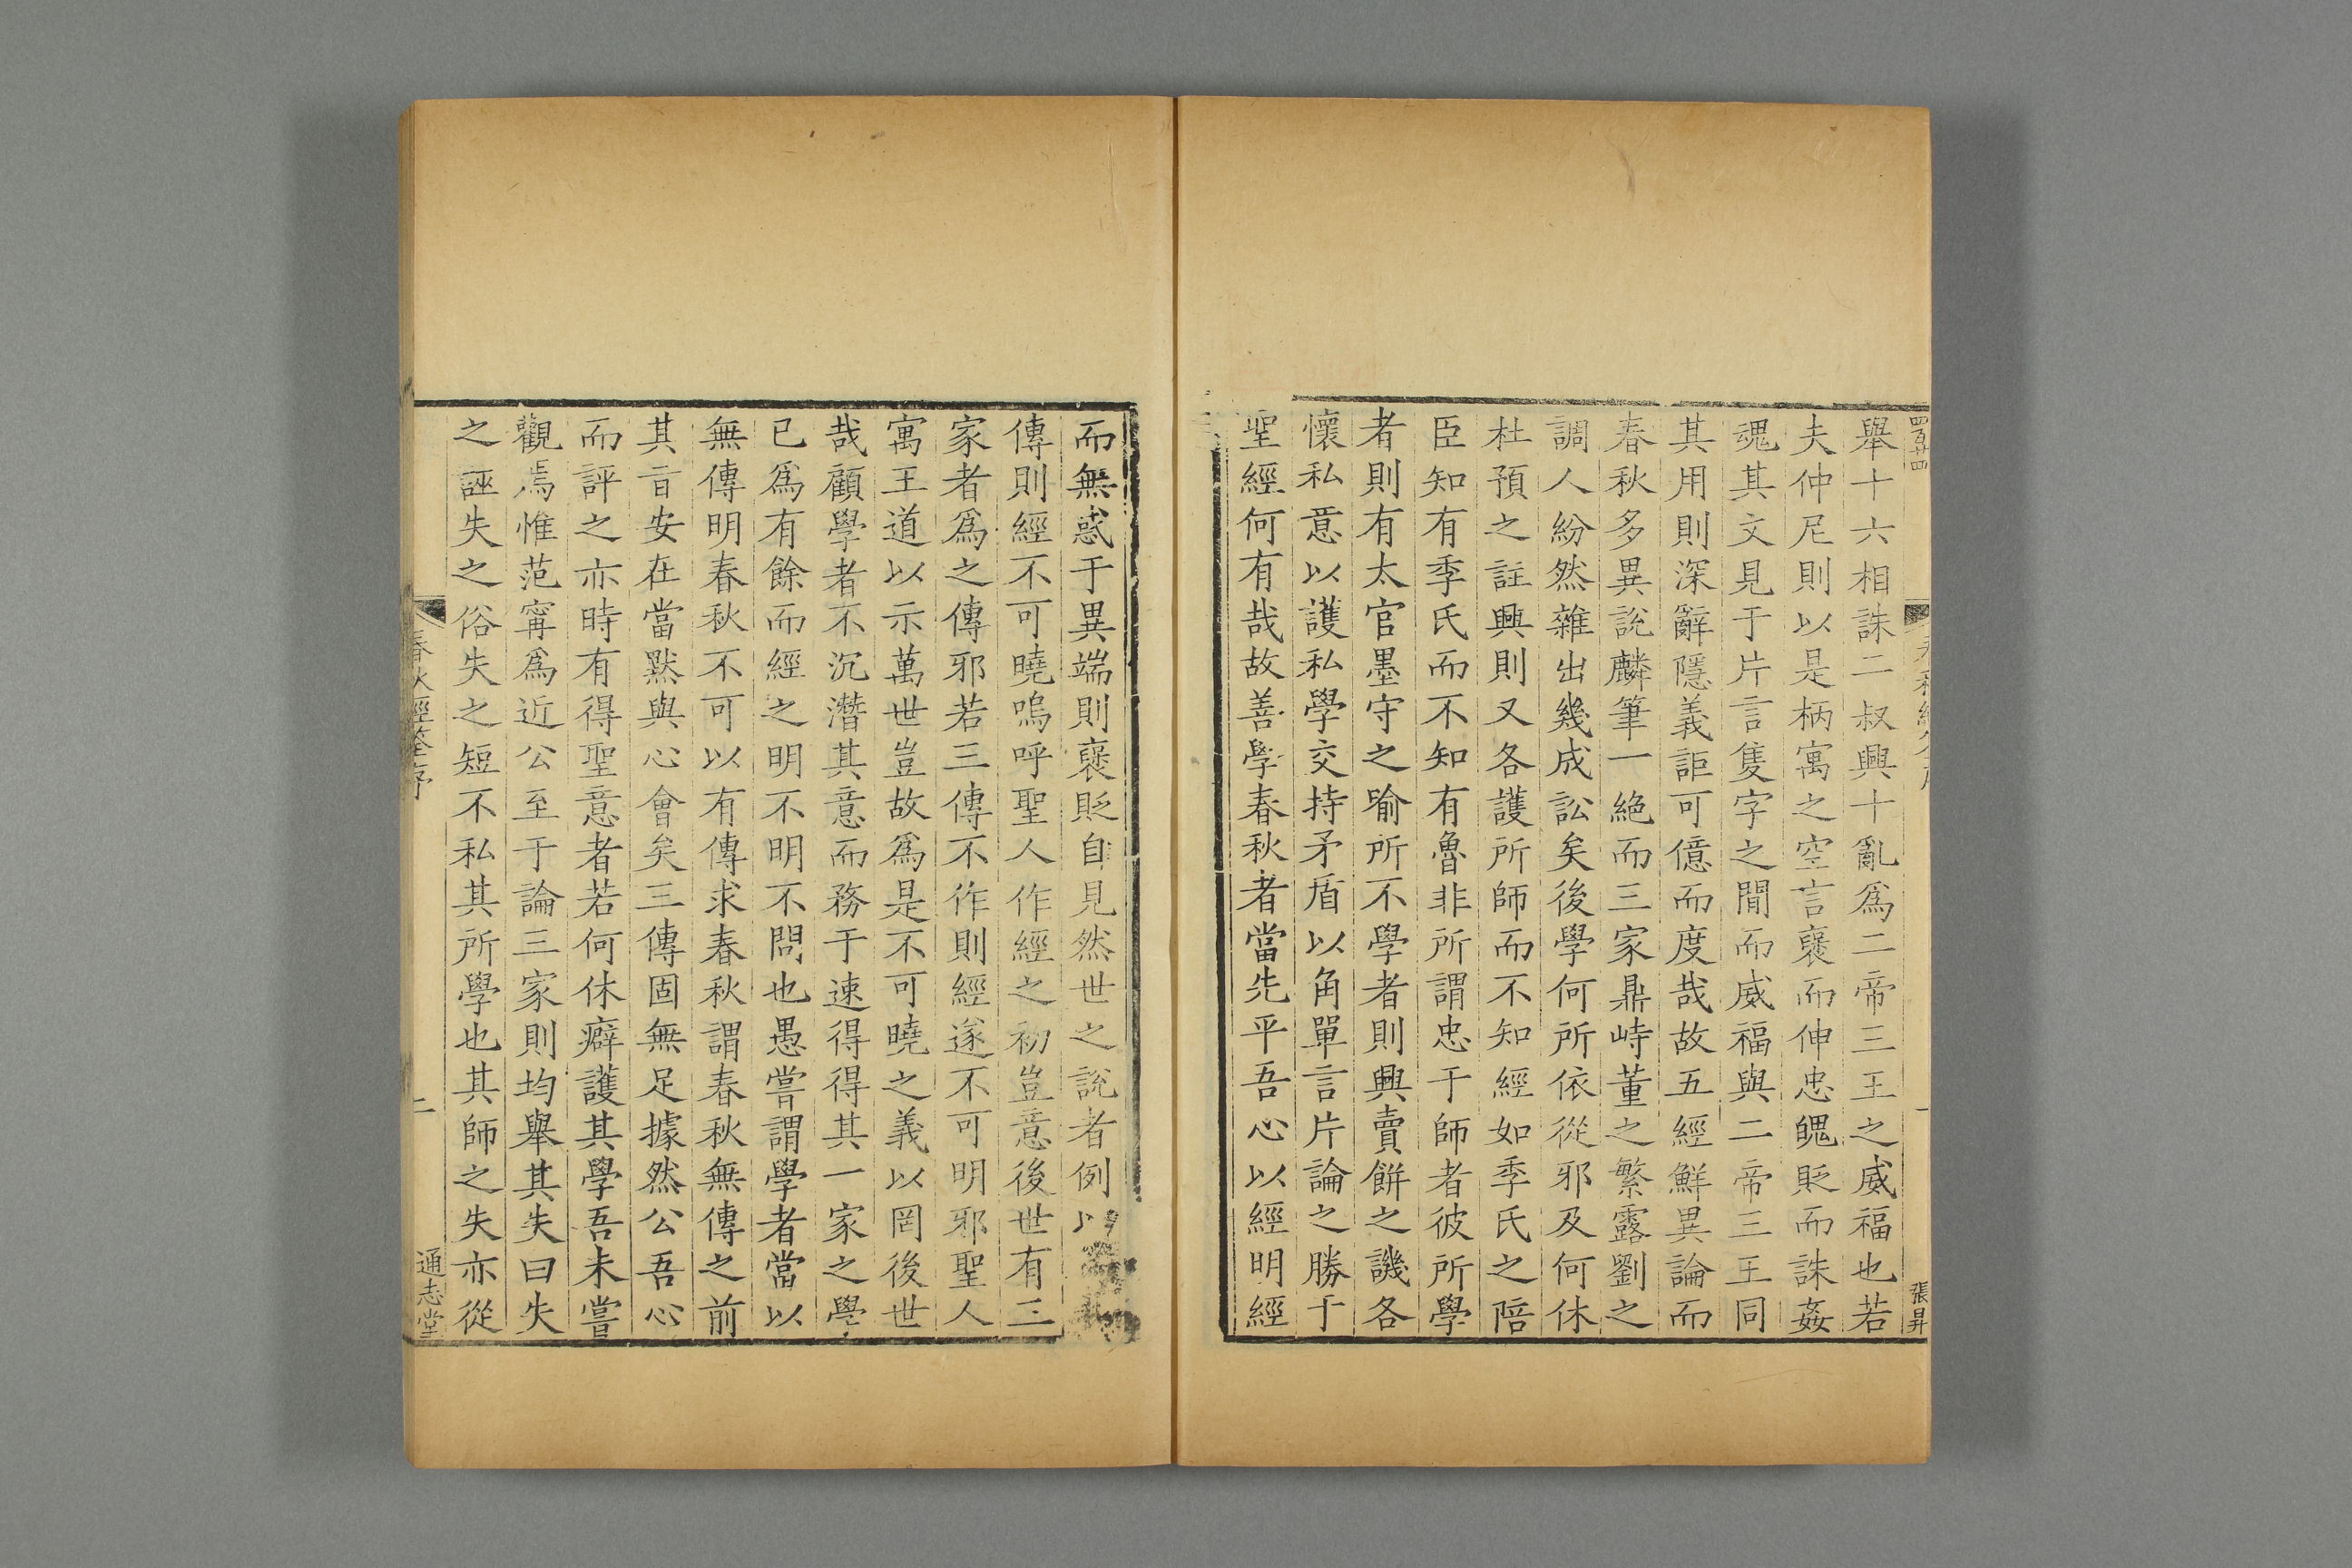 舉十六相誅二叔興十亂爲二帝三王之威福也若
夫仲尼則以是柄寓之空言襃而伸忠䰟貶而誅姦
魂其文見于片言隻字之間而威福與二帝三王同
其用則深辭隱義詎可億而度哉故五經鮮異論而
春秋多異說麟筆一絶而三家鼎峙董之繁露劉之
調人紛然雜出幾成訟矣後學何所依從邪及何休
杜預之註興則又各護所師而不知經如季氏之陪
臣知有季氏而不知有魯非所謂忠于師者彼所學
者則有太官墨守之喻所不學者則興賣餅之譏各
懷私意以護私學交持矛盾以角單言片論之勝于
聖經何有哉故善學春秋者當先平吾心以經明經
而無惑于異端則襃貶自見然世之說者例以
傳則經不可曉嗚呼聖人作經之初豈意後世有三
家者爲之傳邪若三傳不作則經遂不可明邪聖人
寓王道以示萬世豈故爲是不可曉之義以罔後世
哉顧學者不沉潛其意而務于速得得其一家之學
已爲有餘而經之明不明不問也愚嘗謂學者當以
無傳明春秋不可以有傳求春秋謂春秋無傳之前
其旨安在當默與心會矣三傳固無足據然公吾心
而評之亦時有得聖意者若何休癖護其學吾未嘗
觀焉惟范甯爲近公至于論三家則均舉其失曰失
之誣失之俗失之短不私其所學也其師之失亦從
春秋經筌序
二
通志堂
張昇